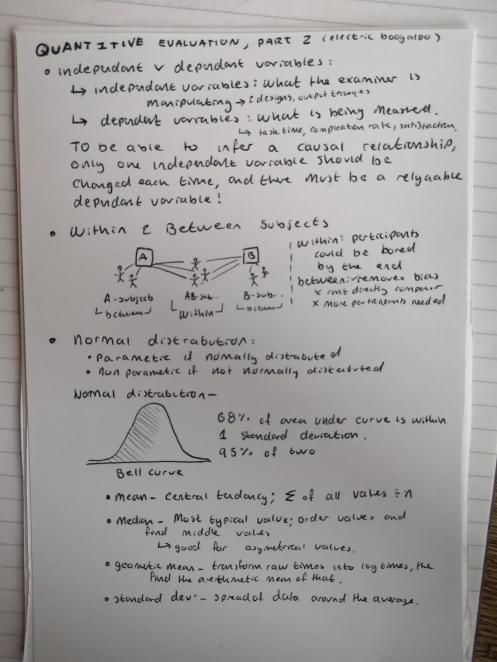 QUANTITIVE EVALUATION, PART 2 (electric boogaloo)
• independant v dependant variables:
↳ independant variables: what the examiner is
manipulating → 2 designs, output
↳ dependant variables: what is being measured.
↳ task time, completion rate, satisfaction.
TO be able to infer a causal relationship,
only one independant variable should be
changed each time, and there must be a relyaable
dependant variable!
• Within & Between Subjects
A
B
A-subjects
between
AB-sub..
Within
B-sub..
between
Within: participants
could be bored
by the end
between: ✓ removes bias
x cant directly compare
x more participants needed
• Normal distrabution:
• Parametic if normally distrabuted
• Non parametic if not normally distrabuted
Normal distrabution-
68% of area under curve is within
1 standard deviation.
95% of two
Bell curve
• mean - central tendancy; Σ of all values ÷ n
• Median - Most typical value; order values and
find middle values
↳ good for asymetrical values.
• geometic mean - transform raw times into log times, the
find the arethmetic mean of that.
• standard dev' - spread of data around the average.